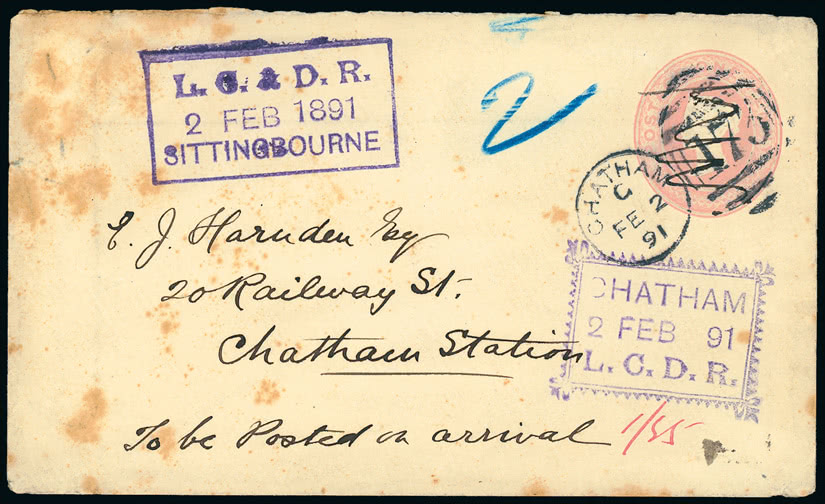 L. C. & D. R.
2 FEB 1891
SITTINGBOURNE
2
POST
175
CHATHAM
C
FE 2
91
E. J. Harnden Esq
20 Railway St.
Chatham Station
CHATHAM
2 FEB 91
L. C. D. R.
To be Posted on arrival
1/35